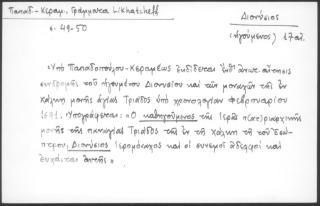 Παπαδ-Κεραμ., Γράμματα Likhatcheff
σ. 49-50
Διονύσιος
(ἡγούμενος) 17 αἰ.
«Ὑπὸ Παπαδοπούλου-Κεραμέως ἐκδίδεται
συνδρομῆς τοῦ ἡγουμένου Διονυσίου καὶ τῶν μοναχῶν τῆς ἐν
Χάλκῃ μονῆς ἁγίας Τριάδος ὑπὸ χρονολογίαν Φεβρουαρίου
1641. Ὑπογράφεται: «Ὁ καθηγούμενος τῆς Ἱερᾶς π(ατ)ριαρχικῆς
μονῆς τῆς παναγίας Τριάδος τῆς ἐν τῇ Χάλκῃ τῇ τοῦ Ἐσό-
πτρου, Διονύσιος Ἱερομόναχος καὶ οἱ συνεμοὶ ἀδελφοὶ καὶ